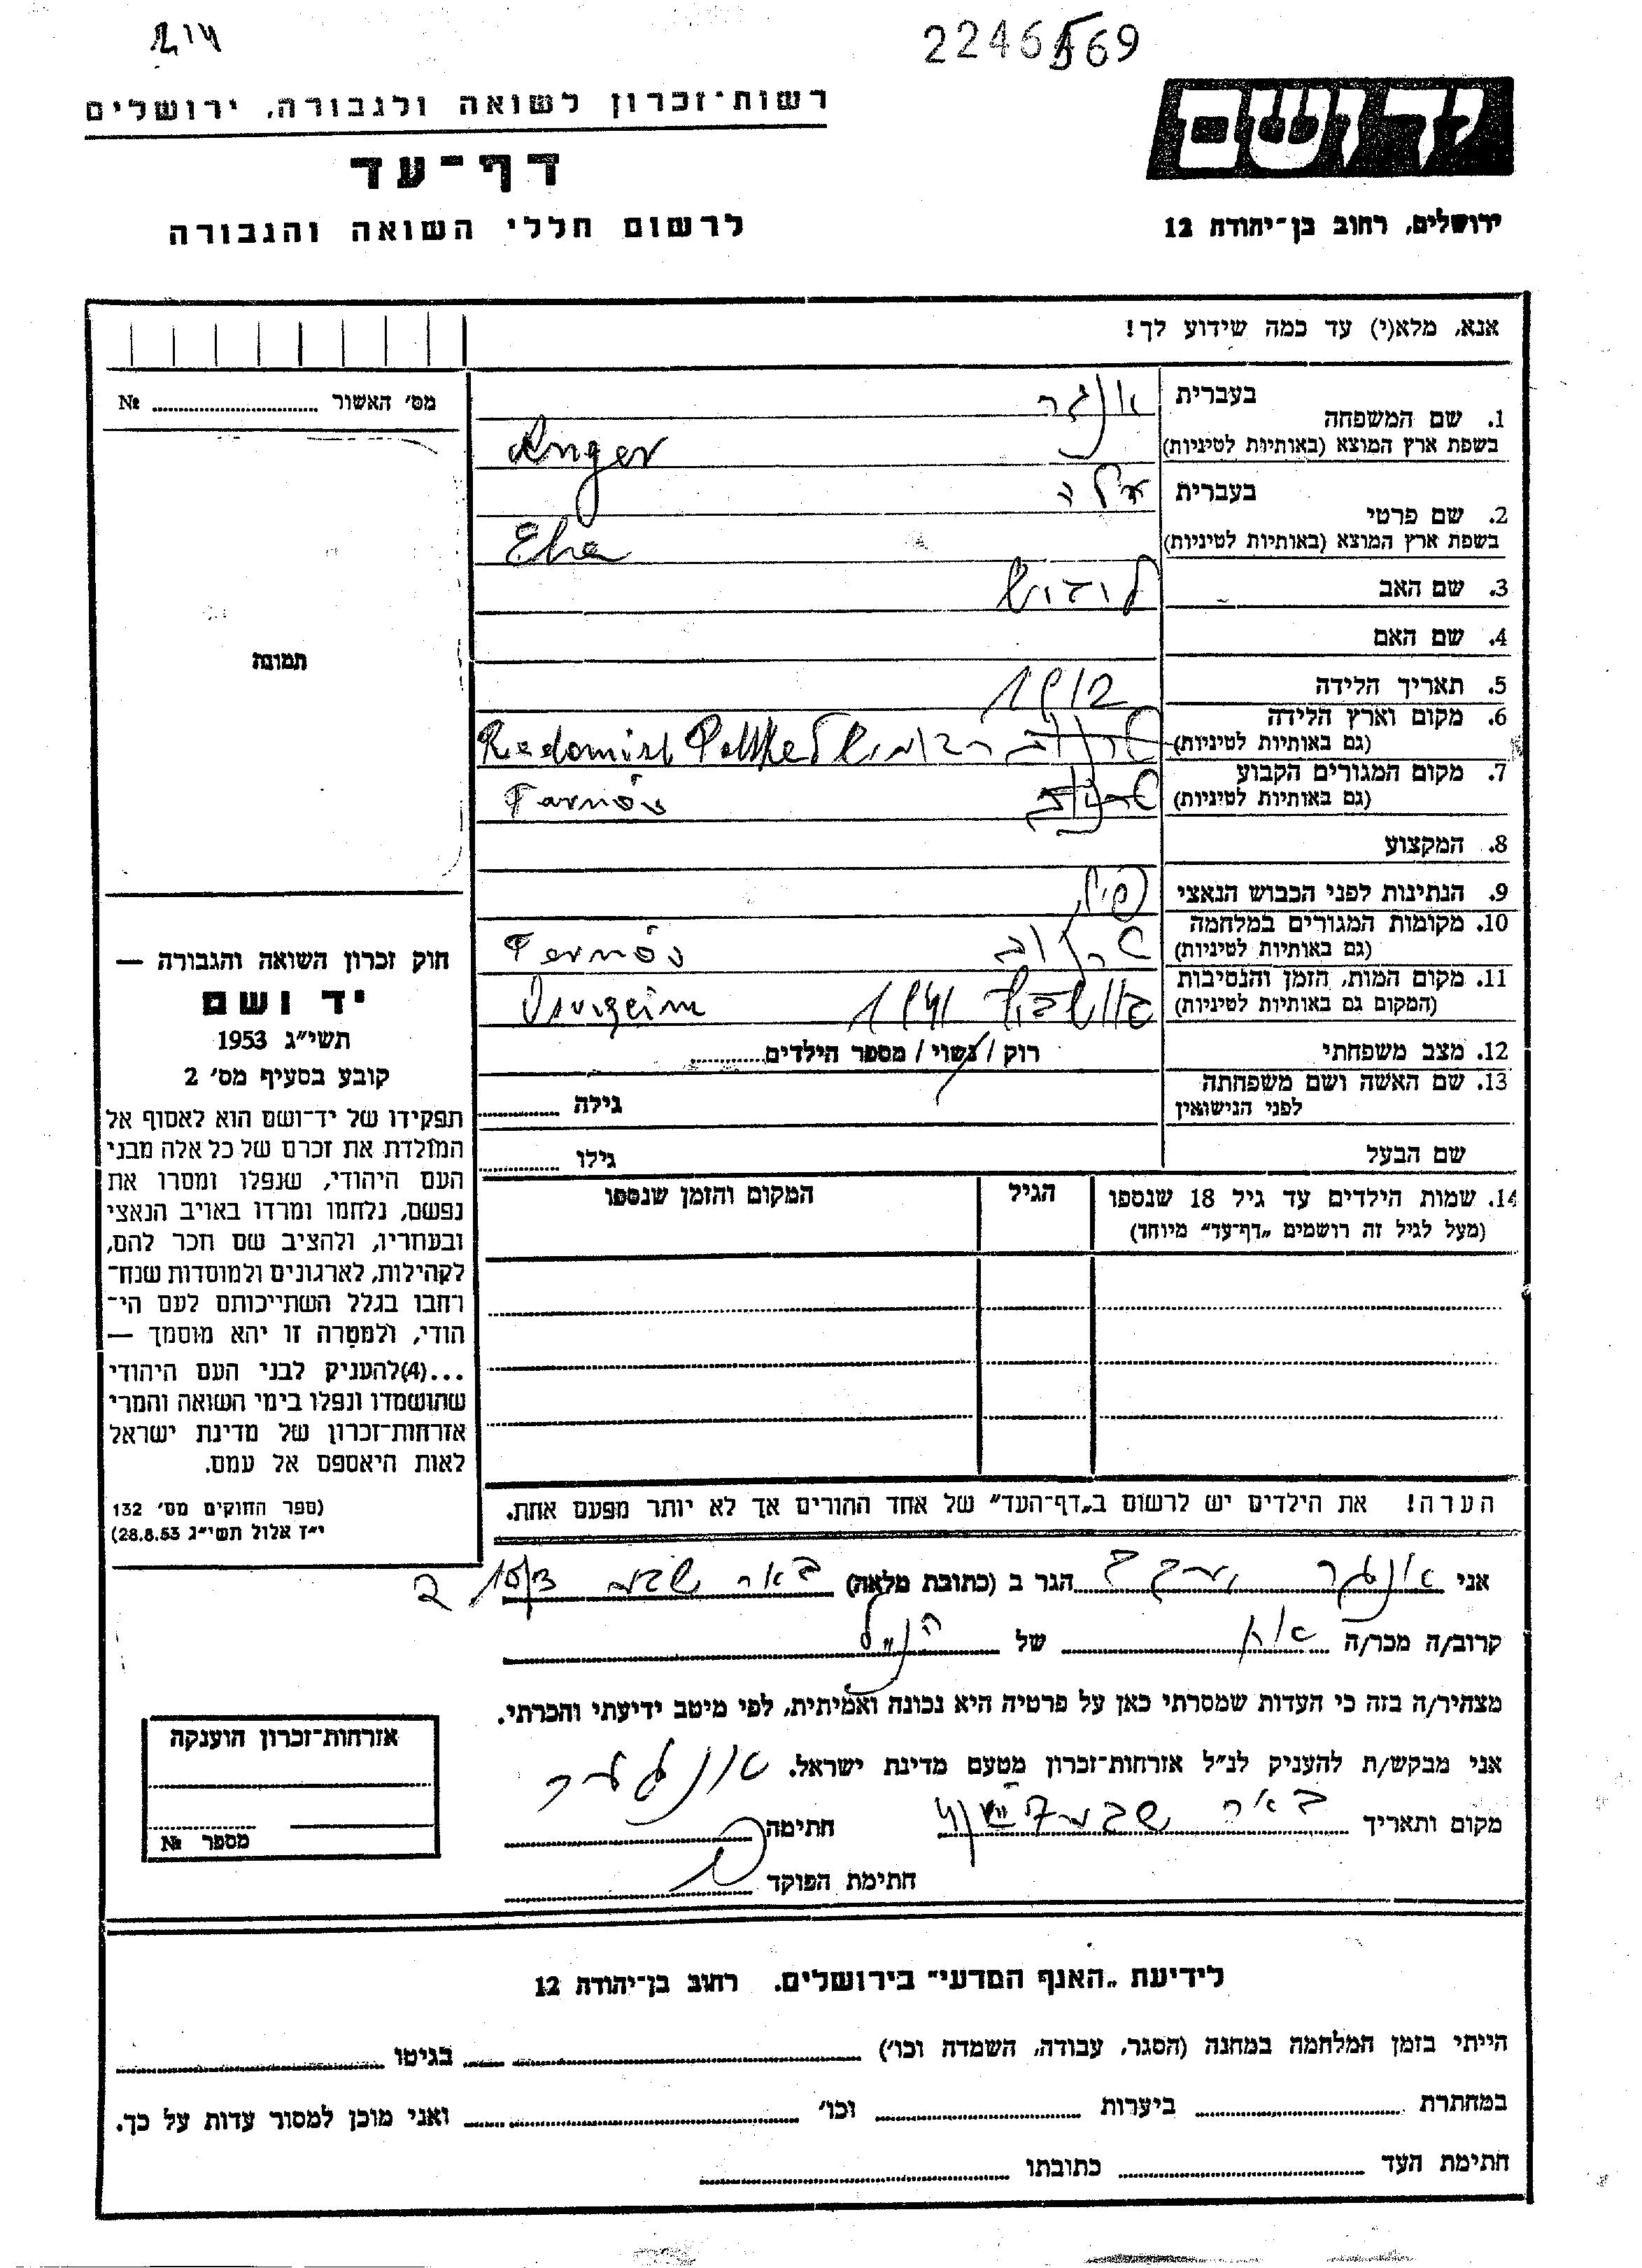 רשות־זכרון לשואה ולגבורה, ירושלים
דף־עד
לרשום חללי השואה והגבורה
יד ושם
ירושלים, רחוב בן־יהודה 12
אנא, מלא(י) עד כמה שידוע לך!
מס' האשור № 
1. שם המשפחה בעברית אונגר
בשפת ארץ המוצא (באותיות לטיניות) Anger
2. שם פרטי בעברית
בשפת ארץ המוצא (באותיות לטיניות)
3. שם האב
4. שם האם
5. תאריך הלידה 1912
6. מקום וארץ הלידה
(גם באותיות לטיניות)
7. מקום המגורים הקבוע
(גם באותיות לטיניות) Tarnów
8. המקצוע
9. הנתינות לפני הכבוש הנאצי
10. מקומות המגורים במלחמה
(גם באותיות לטיניות) טרנוב Ternów
11. מקום המות, הזמן והנסיבות
(המקום גם באותיות לטיניות) 1941
12. מצב משפחתי רוק / נשוי / מספר הילדים
13. שם האשה ושם משפחתה גילה
לפני הנישואין
שם הבעל גילו
14. שמות הילדים עד גיל 18 שנספו הגיל המקום והזמן שנספו
(מעל לגיל זה רושמים „דף־עד" מיוחד)
תמונה
חוק זכרון השואה והגבורה —
יד ושם
תשי״ג 1953
קובע בסעיף מס' 2
תפקידו של יד־ושם הוא לאסוף אל
המולדת את זכרם של כל אלה מבני
העם היהודי, שנפלו ומסרו את
נפשם, נלחמו ומרדו באויב הנאצי
ובעוזריו, ולהציב שם וזכר להם,
לקהילות, לארגונים ולמוסדות שנח־
רחבו בגלל השתייכותם לעם הי־
הודי, ולמטרה זו יהא מוסמך —
...(4)להעניק לבני העם היהודי
שהושמדו ונפלו בימי השואה והמרי
אזרחות־זכרון של מדינת ישראל
לאות היאספם אל עמם.
(ספר החוקים מס' 132
י״ז אלול תשי״ג 28.8.53)
הערה! את הילדים יש לרשום ב„דף־העד" של אחד ההורים אך לא יותר מפעם אחת.
אני אונגר הגר ב (כתובת מלאה) באר שבע
קרוב/ה מכר/ה אח של הנ״ל
מצהיר/ה בזה כי העדות שמסרתי כאן על פרטיה היא נכונה ואמיתית, לפי מיטב ידיעתי והכרתי.
אני מבקש/ת להעניק לנ״ל אזרחות־זכרון מטעם מדינת ישראל.
מקום ותאריך באר שבע חתימה
חתימת הפוקד
אזרחות־זכרון הוענקה
מספר №
לידיעת „האגף המדעי" בירושלים. רחוב בן־יהודה 12
הייתי בזמן המלחמה במחנה (הסגר, עבודה, השמדה וכו') בגיטו
במחתרת ביערות וכו' ואני מוכן למסור עדות על כך.
חתימת העד כתובתו